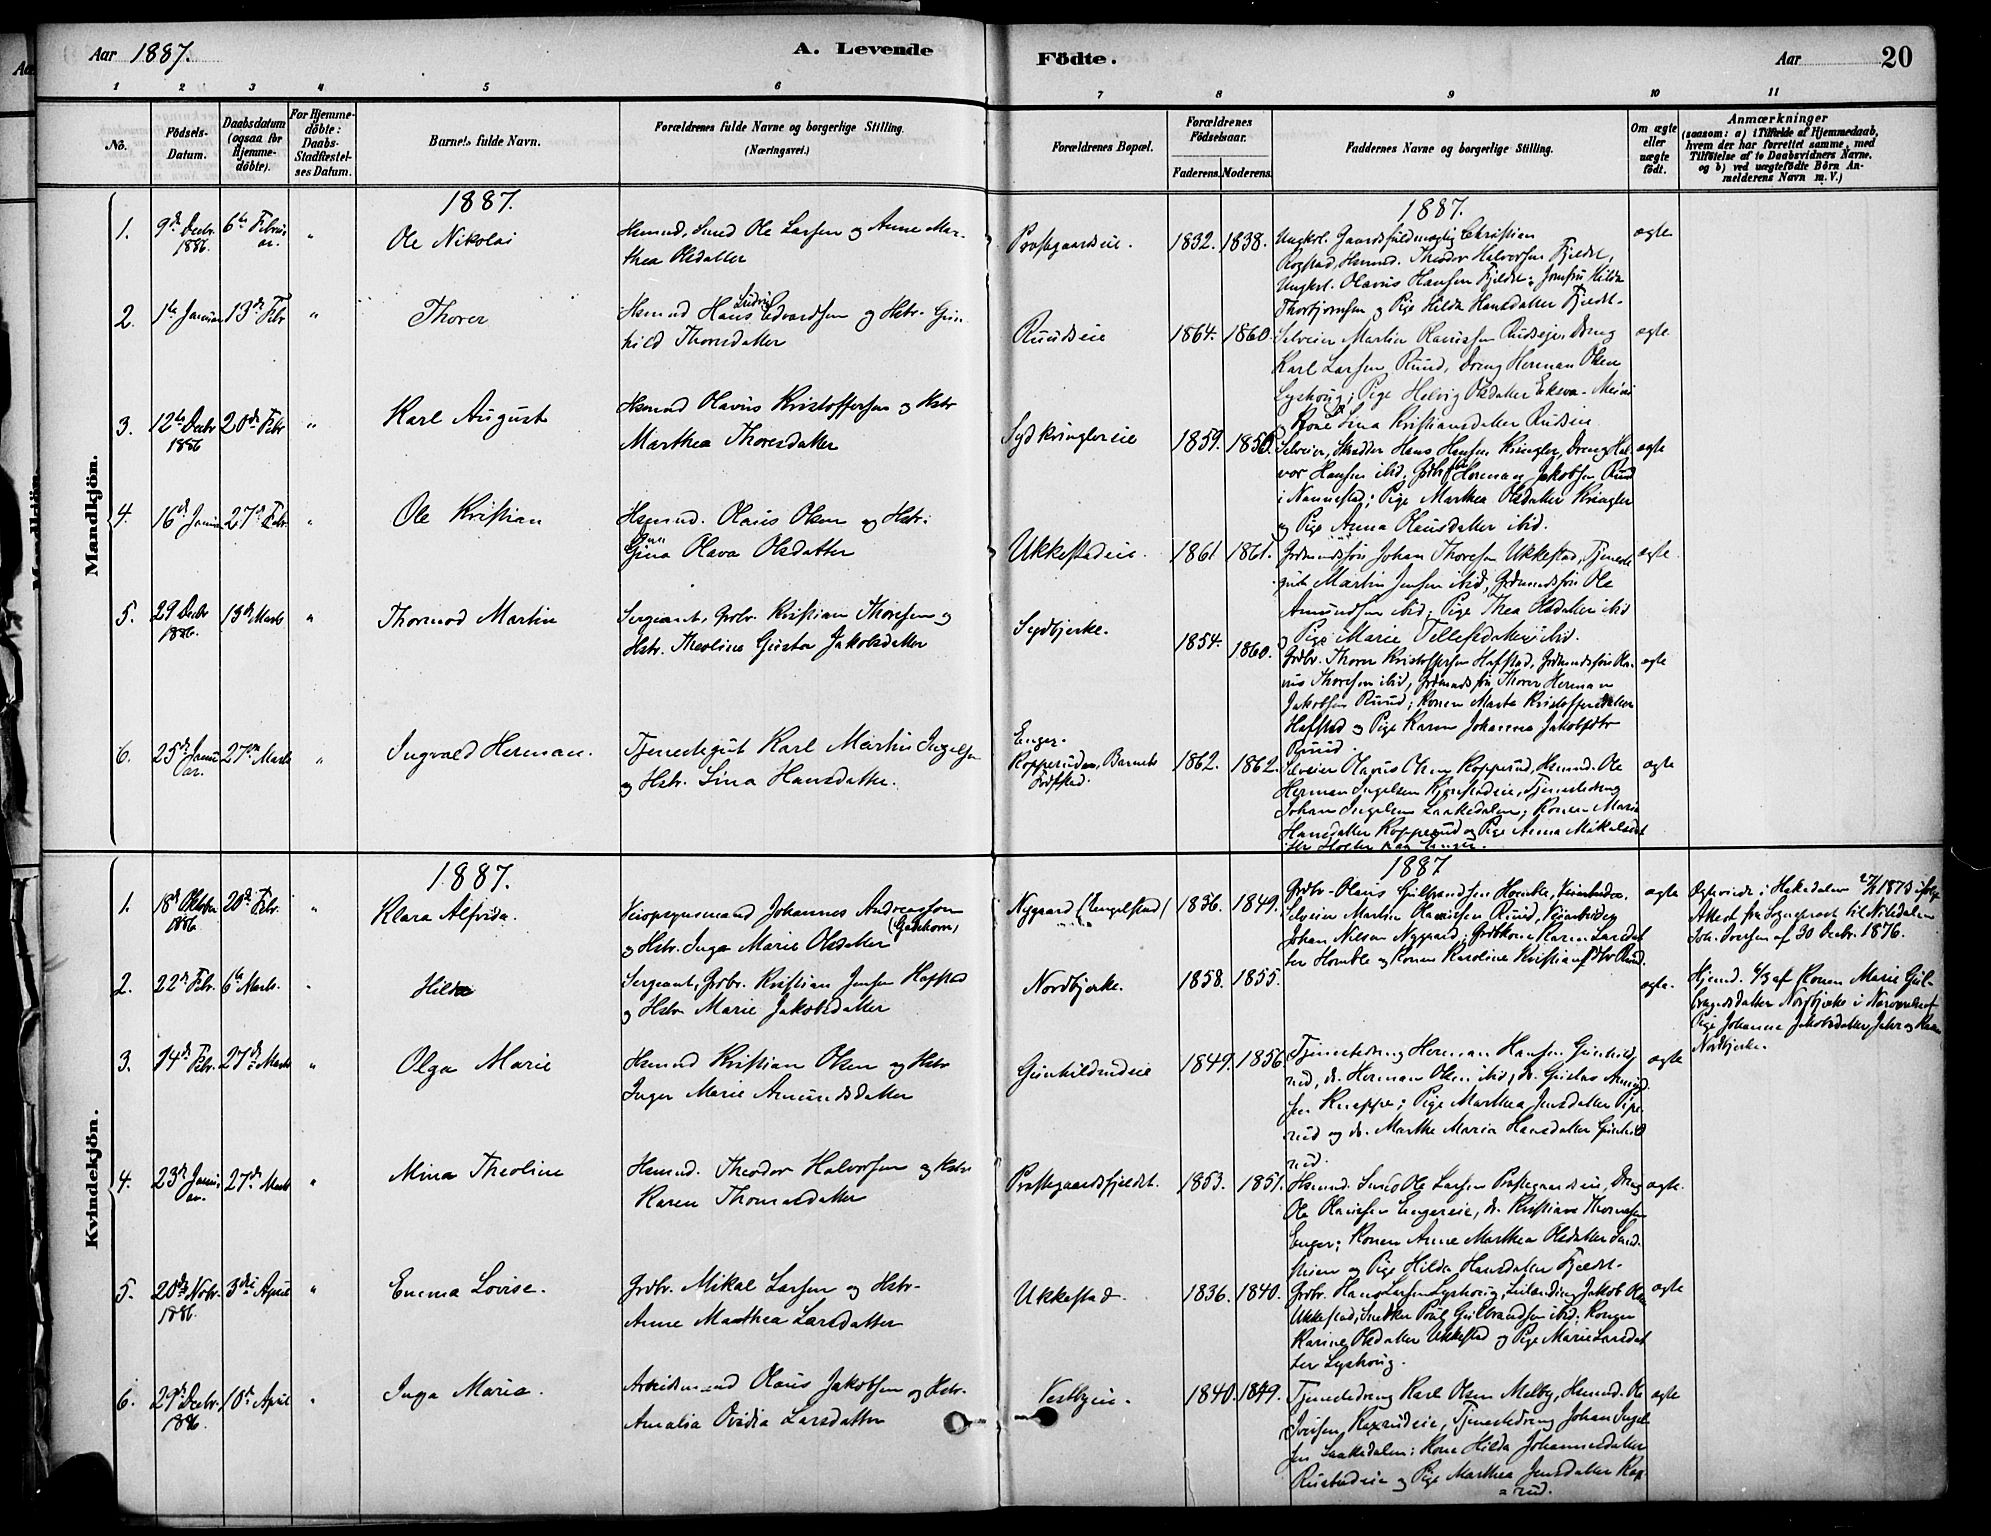 Aar 1887.
A. Levende
Födte.
Aar
20
1 2 3 4 5 6 7 8 9 10 11
No.
Födsels-
Datum.
Daabsdatum
(ogsaa for
Hjemme-
döbte).
For Hjemme-
döbte:
Daabs-
Stadfæstel-
ses Datum.
Barnets fulde Navn.
Forældrenes fulde Navne og borgerlige Stilling.
(Næringsvei.)
Forældrenes Bopæl.
Forældrenes
Födselsaar.
Faderens.
Moderens.
Faddernes Navne og borgerlige Stilling.
Om ægte
eller
uægte
födt.
Anmærkninger
(saasom: a) i Tilfælde af Hjemmedaab,
hvem der har forrettet samme, med
Tilföielse af to Daabsvidners Navne,
og b) ved uægtefödte Börn An-
melderens Navn m. V.)
Mandkjön.
1887.
1887.
1. 9de Decbr. 1886. 6te Februar. "
Ole Nikolai
Hsmnd, Smed Ole Larsen og Anne Mar-
thea Olsdatter
Præstegaardseie. 1832. 1838.
Ungkrl. Gaardsfuldmægtig Christian
Rogstad, Hsmnd. Theodor Halvorsen Fjeldst,
Ungkrl. Olavus Hansen Fjeldst; Jomfru Hilda
Thorbjørnsen og Pige Hilda Hansdatter Fjeldst.
ægte
2. 1te Januar 13de Febr "
Thorer
Hsmnd Hans Ludvig Edvardsen og Hstr. Gun-
hild Thorsdatter
Ruudseie 1864. 1860.
Selveier Martin Olaussen Rudseje, Dreng
Karl Larsen Ruud, Dreng Herman Olsen
Lyshoug; Pige Helvig Olsdatter
Kone Lina Kristiansdatter Rudseie
ægte
3. 12te Decbr 1886 20de Febr "
Karl August
Hsmnd Olavus Kristoffersen og Hstr
Marthea Thoresdatter
Sydkringlereie 1859. 1856.
Selveier, Skrædder Hans Hansen Kringler, Dreng Hal-
vor Hansen ibid, Herman Jakobsen Ruud
i Nannestad; Pige Marthea Olsdatter Kringler
og Pige Anna Olausdatter ibid.
ægte
4. 16de Januar 27de Febr "
Ole Kristian
Hsmnd. Olaus Olsen og Hstr.
Gina Olava Olsdatter
Ukkestadeie. 1861 1861.
Grdmandssøn Johan Thoresen Ukkestad, Tjeneste-
gut Martin Jensen ibid, Grdmandssøn Ole
Amundsen ibid; Pige Thea Olsdatter ibid
Pige Marie Tellefsdatter ibid.
ægte
5. 29 Decbr 1886. 13de Marts "
Thormod Martin
Sergeant, Grdbr. Kristian Thoresen og
Hstr. Theoline Gusta Jakobsdatter
Sydbjerke. 1854. 1860.
Grdbr. Thorer Kristoffersen Hafstad, Grdmandssøn
Thoresen ibid, Grdmandssøn Thorer Herman
Jakobsen Ruud; Konen Marte Kristoffersdatter
Hafstad og Pige Karen Johanna Jakobsdtr
Ruud.
ægte
6. 25de Januar. 27de Marts "
Ingvald Herman.
Tjenestegut Karl Martin Ingelsen
og Hstr. Lina Hansdatter.
Enger-
Kopperuden, Barnets
Fødested.
1862. 1862.
Selveier Olavus Olsen Kopperud, Hsmnd. Ole
Herman Ingelsen, Tjenestedreng
Johan Ingelsen Laakedalen; Konen Maria
Hansdatter Kopperud og Pige Anna Mikalsdat-
ter Holter paa Enger.
ægte
Kvindekjön.
1887.
1887
1. 18de Oktober 1886. 20de Febr. "
Klara Alfrida.
Veiopsynsmand Johannes Andreassen
(Gashorn)
og Hstr. Inga Marie Olsdatter
Nygaard (Engelstad) 1836. 1849.
Grdbr. Olaus Gulbrandsen Homble, Veiarbeider
Selveier Martin Olaussen Ruud, Veiarbeider
Johan Nilsen Nygaard; Grdbkone Karen Larsdat-
ter Homble og Konen Karoline Kristiansdtr Ruud.
ægte
Ægteviede i Hakadalen 1873 ifølge
Attest fra Sognepræst til Nitedalen
af 30 Decbr. 1876.
2. 22de Febr. 6te Marts. "
Hilda
Sergeant, Grdbr. Kristian Jensen Hafstad
og Hstr Marie Jakobsdatter
Nordbjerke. 1858. 1855.
ægte.
Hjemd. 6/3 af Konen Marie Gul-
brandsdatter Nordbjerke i Nærværelse af
Pige Johanna Jakobsdatter og
Nordbjerke.
3. 14de Febr. 27de Marts "
Olga Marie
Hsmnd Kristian Olsen og Hstr
Inger Marie Amundsdatter
Gunhildrudeie 1849. 1856.
Tjenestedreng Herman Hansen Gunhild-
rud, do. Herman Olsen ibid, do. Gustav Amund-
sen Knappe; Pige Marthea Jensdatter Pipe-
rud og do. Marthe Maria Hansdatter Gunhild-
rud.
ægte
4. 23de Januar. 27de Marts "
Mina Theoline
Hsmnd. Theodor Halvorsen og Hstr
Karen Thomasdatter
Præstegaardsfjeldst. 1853. 1851.
Hsmnd. Smed Ole Larsen Præstegaardseie, Dreng
Ole Olaussen Engereie, do. Kristian Thomassen
Enger; Konen Anne Marthea Olsdatter
og Pige Hilda Hansdatter Fjeldst.
ægte.
5. 20de Novbr. 1886. 3die April "
Emma Lovise.
Grdbr. Mikal Larsen og Hstr.
Anne Marthea Larsdatter
Ukkestad. 1836. 1840.
Grdbr. Hans Larsen Lyshoug, Leilænding Jakob Olsen
Ukkestad, Snedker Gulbrandsen ibid; Konen
Karine Olsdatter Ukkestad og Pige Marie Larsdat-
ter Lyshoug.
ægte
6. 29de Decbr. 1886. 10de April "
Inga Maria.
Arbeidsmand Olaus Jakobsen og Hstr.
Amalia Ovidia Larsdatter
Vestbyeie. 1840. 1849.
Tjenestedreng Karl Olsen Melby, Hsmnd. Ole
Iversen Raxrudeie, Tjenestedreng Johan Ingel-
sen Laakedalen; Kone Hilda Johannesdatter
og Pige Marthea Jensdatter Rax-
rud.
ægte